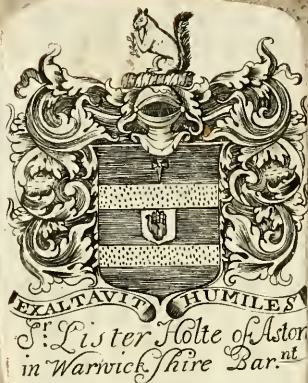 EXALTAVIT HUMILES
Sr. Lister Holte of Aston
in Warwickshire Bar.nt